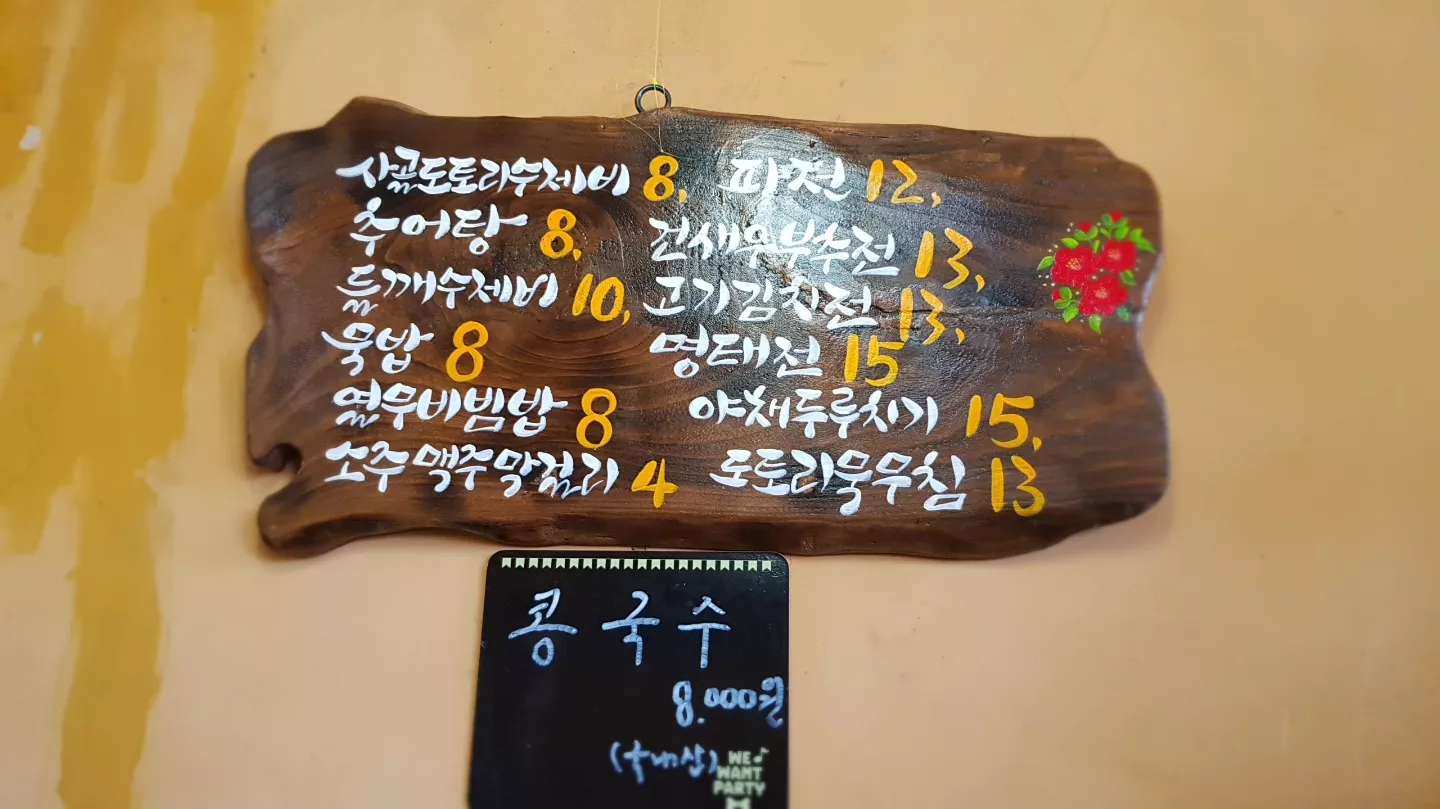 사골도토리수제비 8,
추어탕 8,
들깨수제비 10,
묵밥 8
열무비빔밥 8
소주 맥주 막걸리 4
파전 12,
건새우부추전 13,
고기김치전 13,
명태전 15
야채두루치기 15,
도토리묵무침 13
콩국수
8.000원
(국내산)
WE
WANT
PARTY